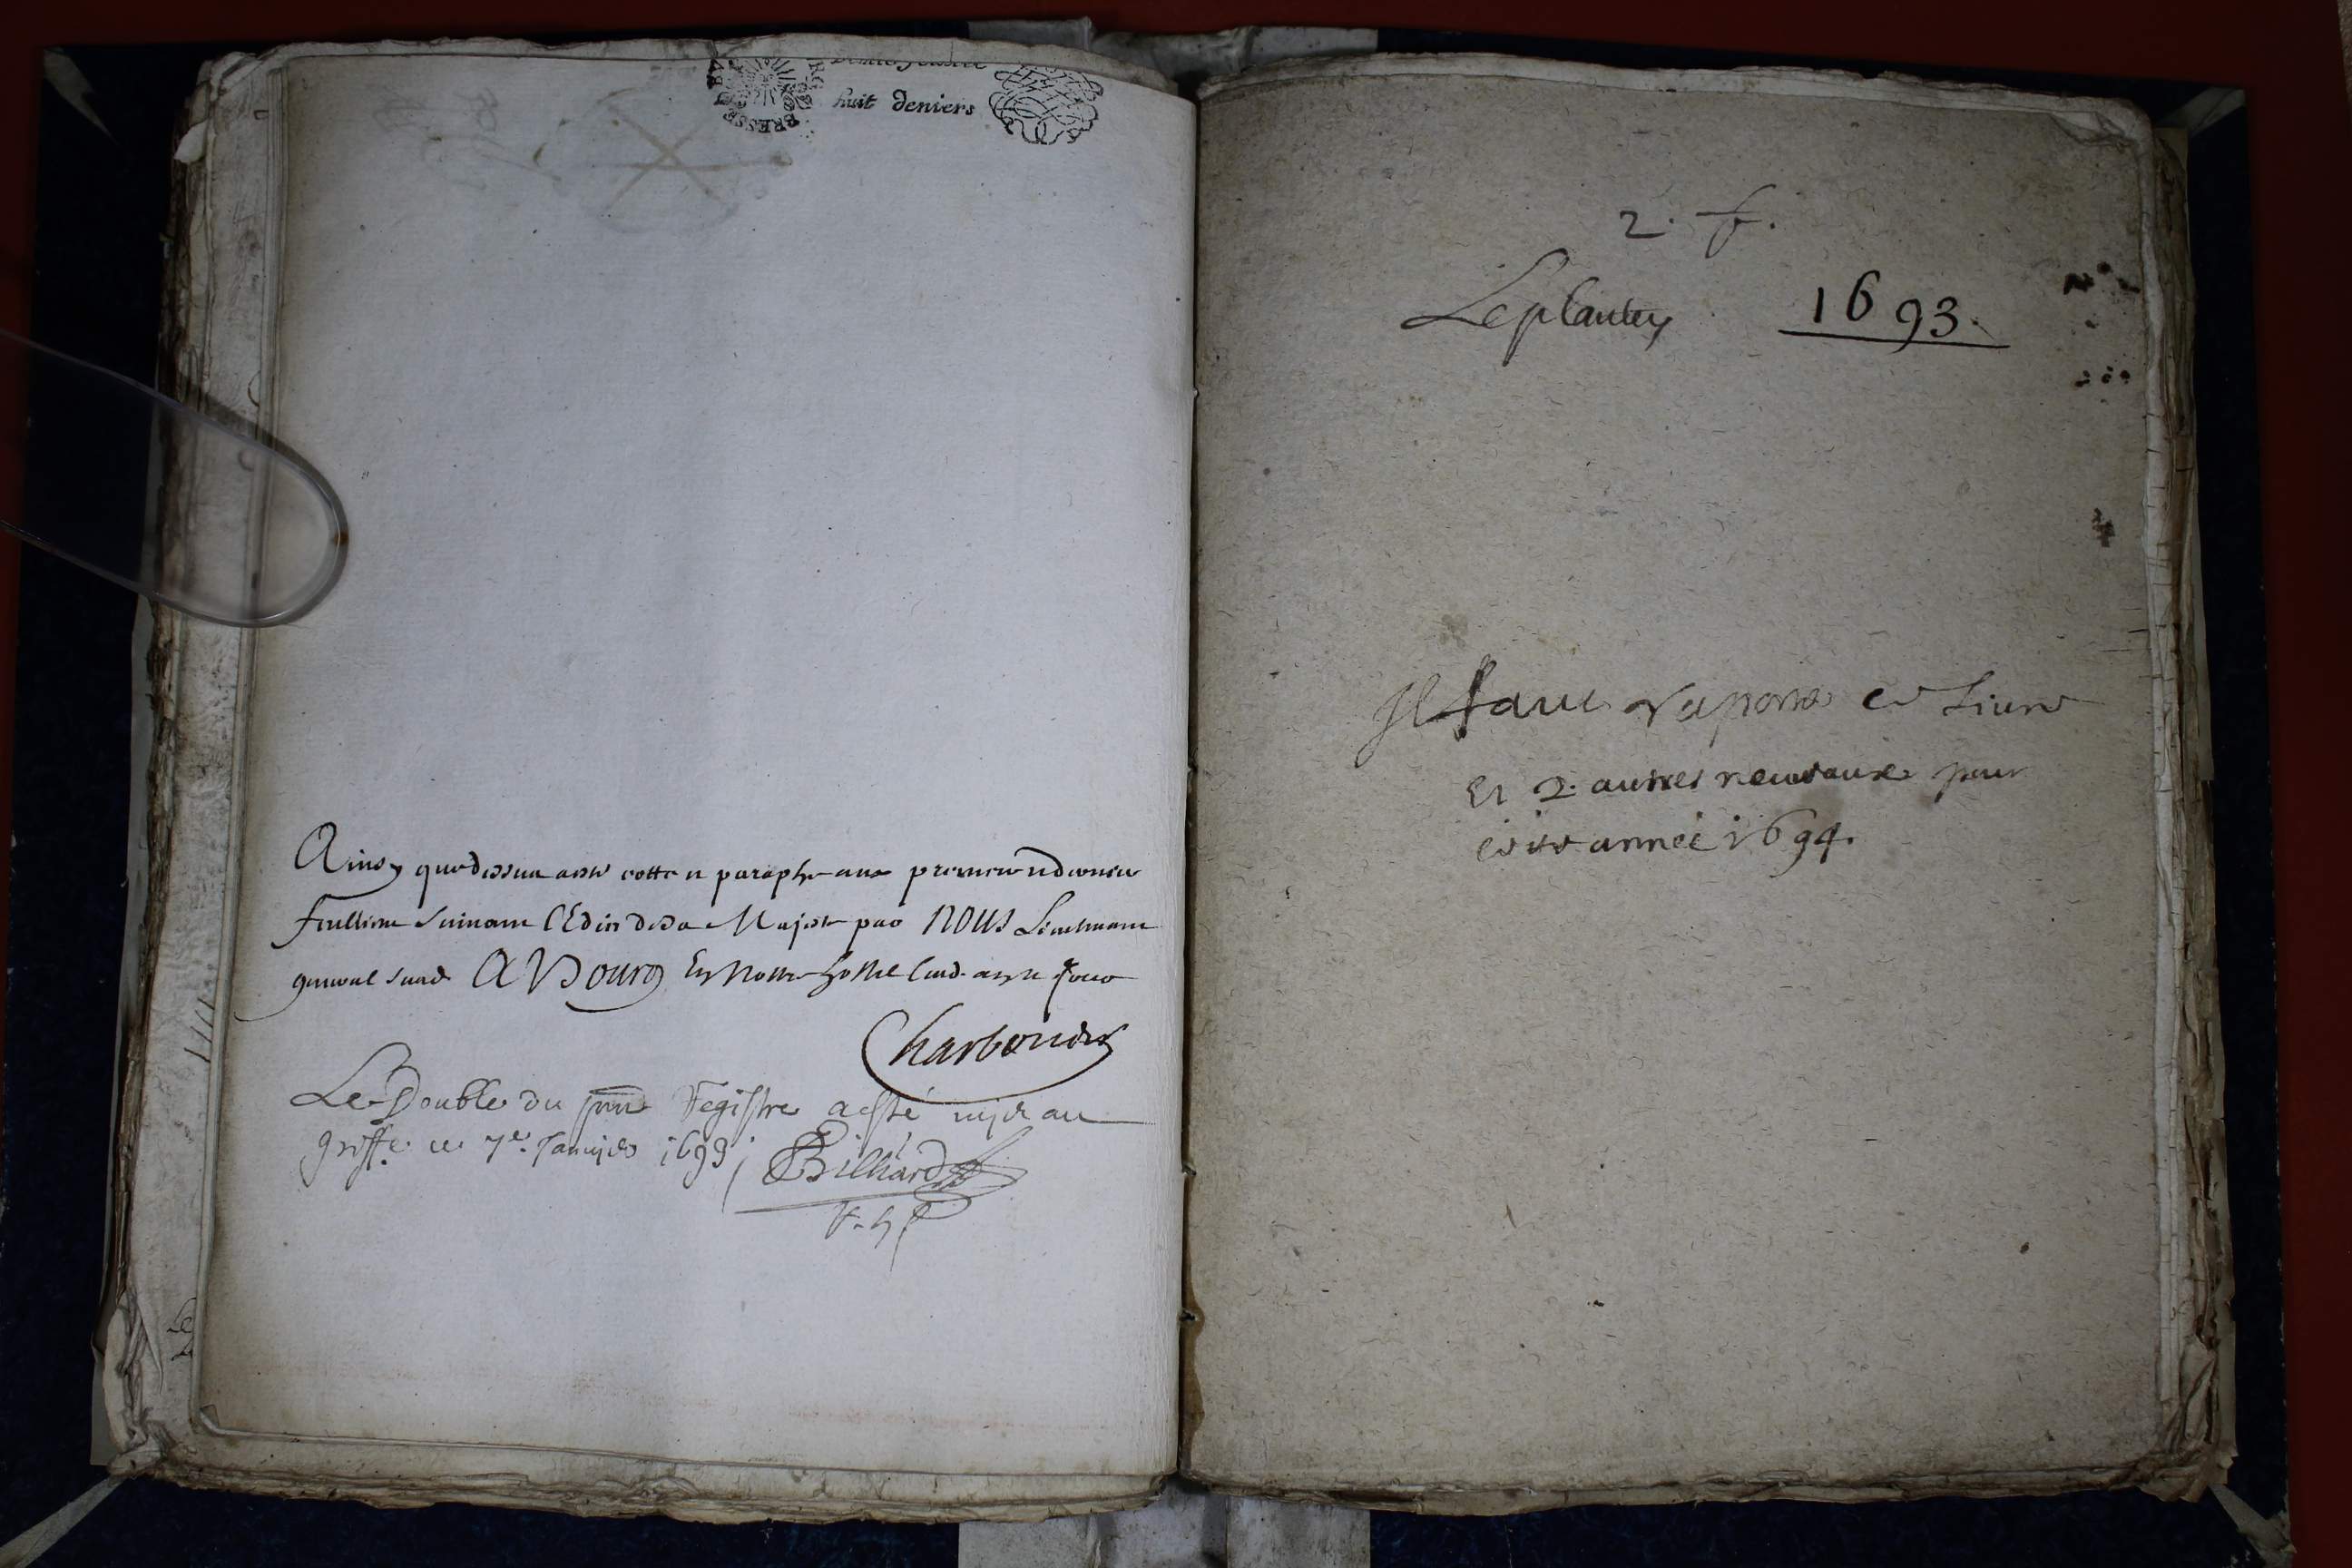 BRESSE
huit deniers
Ainsy que dessus a esté cotté et paraphé aux premier et dernier
feuillets suivant l'Edit de Sa Majesté par NOUS Lieutenant
general susd A Bourg En Nostre hostel lesd. an et jour
Charbonnier
Le Double du pnt Registre a esté mis au
greffe ce 7e. Janvier 1693
Billiard
2. f.
Leplantay 1693.
Il faut raporter ce Livre
Et 2. autres nouveaux pour
année 1694.